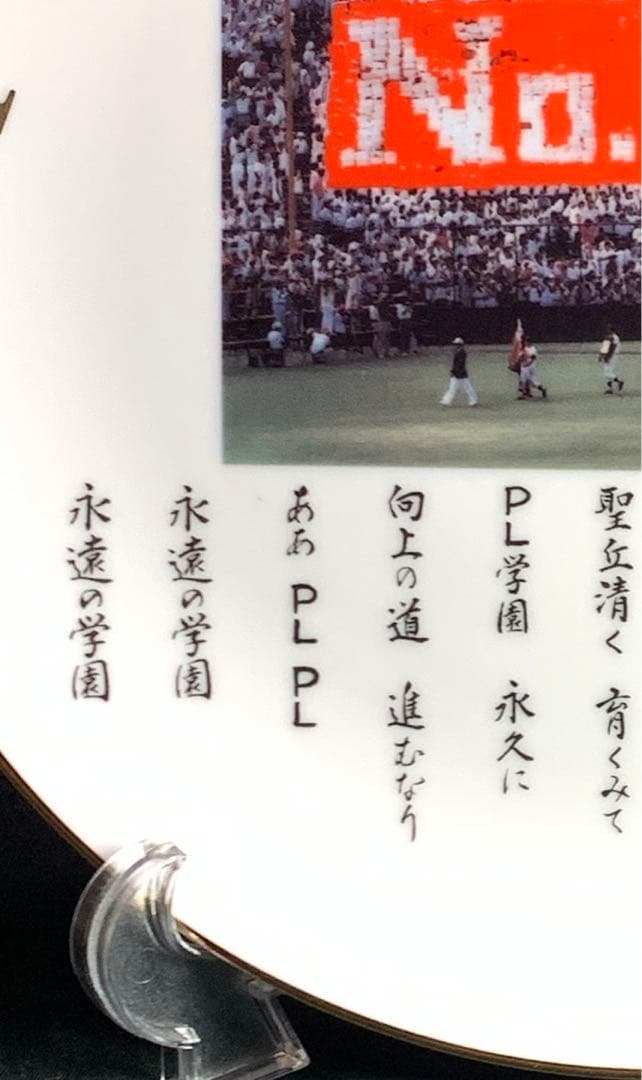 No.
聖丘清く 育くみて
PL学園 永久に
向上の道 進むなり
ああ PL PL
永遠の学園
永遠の学園